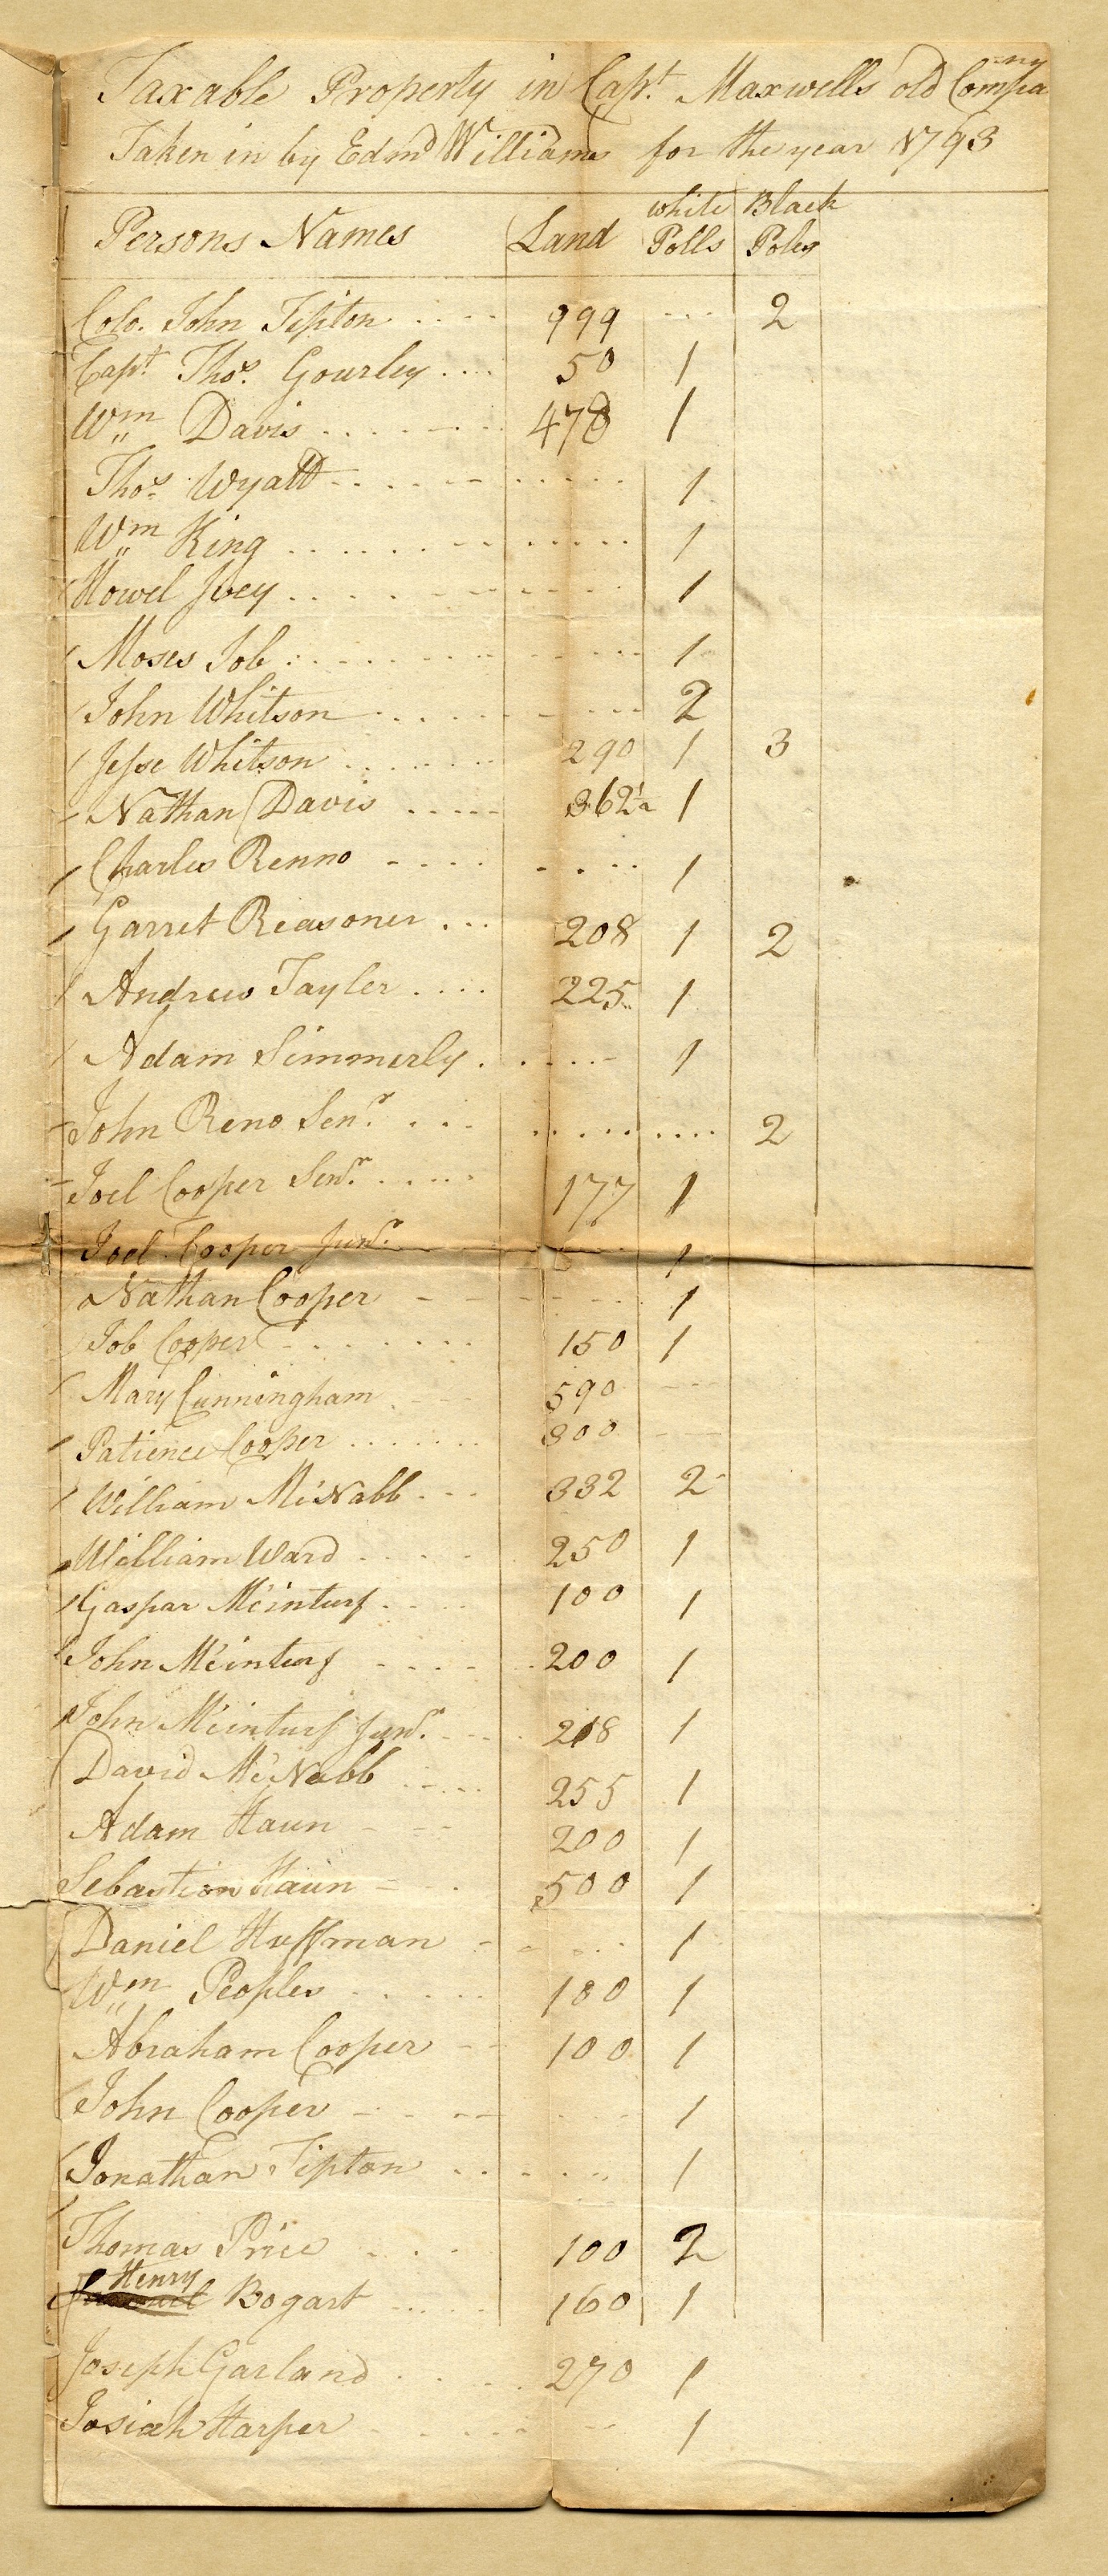 Taxable Property in Capt. Maxwells old Company
Taken in by Edmd Williams for the year 1793
Persons Names Land white Polls Black Poles
Colo. John Tipton .... 999 ... 2
Capt. Thos. Gourley .... 50 1
Wm Davis ...... 478 1
Thos. Wyatt ......... 1
Wm King ........... 1
Howel Ivey .......... 1
Moses Job ........... 1
John Whitson ........ 2
Jesse Whitson ...... 290 1 3
Nathan Davis ..... 362½ 1
Charles Renno ........ 1
Garret Reasoner ... 208 1 2
Andrew Tayler .... 225 1
Adam Simmerly ..... 1
John Reno Senr. ............ 2
Joel Cooper Senr. ..... 177 1
Joel Cooper Junr. ........ 1
Nathan Cooper ........ 1
Job Cooper ....... 150 1
Mary Cunningham ... 590 ...
Patience Cooper ....... 300 ...
William McNabb ... 332 2
William Ward ..... 250 1
Gaspar McInturf .... 100 1
John McInturf ..... 200 1
John McInturf Junr. .... 218 1
David McNabb ..... 255 1
Adam Haun --- 200 1
Sebastion Haun -- 500 1
Daniel Huffman ..... 1
Wm Peoples ..... 100 1
Abraham Cooper -- 100 1
John Cooper ------ 1
Jonathan Tipton ...... 1
Thomas Price .... 100 2
Henry
Bogart .... 160 1
Joseph Garland .... 270 1
Josiah Harper ....... 1